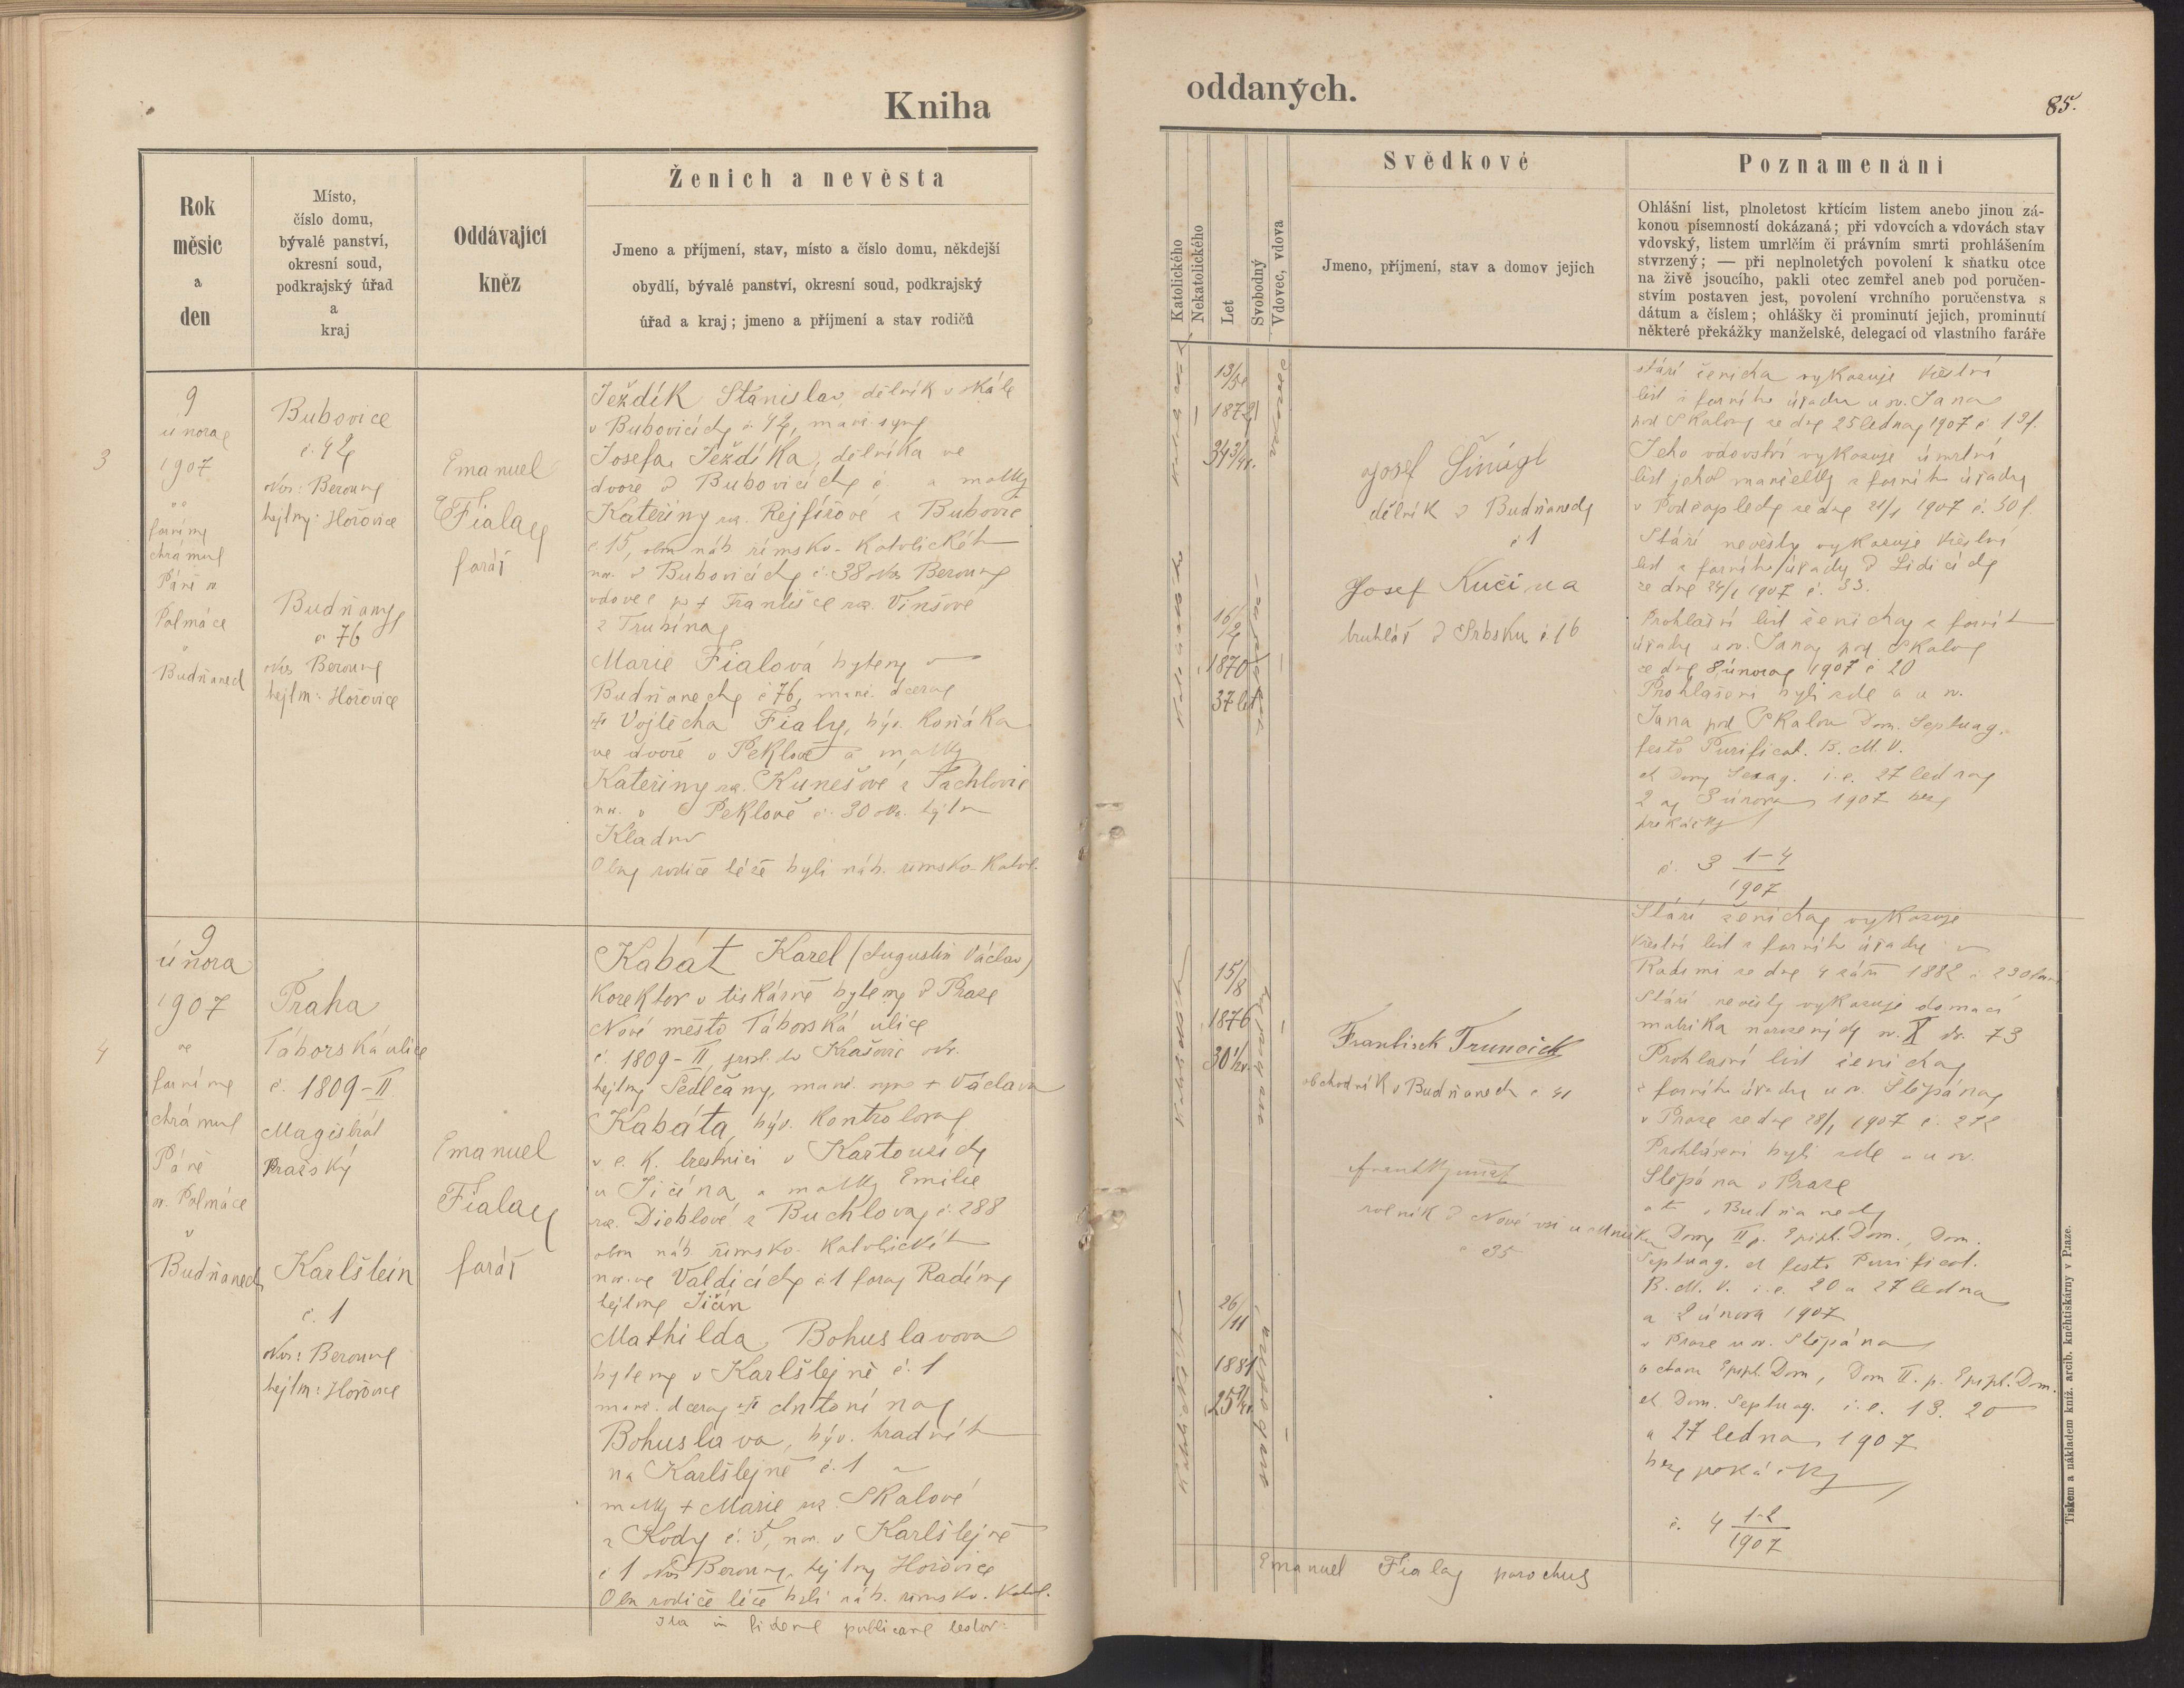 Kniha
oddaných.
85.
Rok
měsíc
a
den
Místo,
číslo domu,
bývalé panství,
okresní soud,
podkrajský úřad
a
kraj
Oddávající
kněz
Ženich a nevěsta
Jmeno a příjmení, stav, místo a číslo domu, někdejší
obydlí, bývalé panství, okresní soud, podkrajský
úřad a kraj; jmeno a příjmení a stav rodičů
Katolického
Nekatolického
Let
Svobodný
Vdovec, vdova
Svědkové
Jmeno, příjmení, stav a domov jejich
Poznamenání
Ohlášní list, plnoletost křtícím listem anebo jinou zá-
konou písemností dokázaná; při vdovcích a vdovách stav
vdovský, listem umrlčím či právním smrti prohlášením
stvrzený; — při neplnoletých povolení k sňatku otce
na živě jsoucího, pakli otec zemřel aneb pod poručen-
stvím postaven jest, povolení vrchního poručenstva s
dátum a číslem; ohlášky či prominutí jejich, prominutí
některé překážky manželské, delegací od vlastního faráře
3
9
února
1907
ve
farním
chrámu
Páně
Palmáce
v
Budňanech
Bubovice
Okr: Beroun
hejtm: Hořovice
Budňany
č 76
okr Beroun
hejtm: Hořovice
Emanuel
Fiala
farář
Ježdík Stanislav, dělník v skále
v Bubovicích
Josefa Ježdíka, dělníka ve
dvoře v Bubovicích č a matky
Kateřiny roz. Rejfířové z Bubovic
č 15, obou náb. římsko-katolického
nar. v Bubovicích č. 38 okr Beroun
vdovec po + Františce roz. Vinšové
z Trubína
Marie Fialová bytem v
Budňanech č 76, manž. dcera
Vojtěcha Fialy, býv. koňáka
ve dvoře v Peklově a matky
Kateřiny roz. Kunešové z Tachlovic
nar. v Peklově č. 30 okr. hejtm
Kladno
Oba rodiče též byli náb. římsko-katol.
1872
34 3/4 r.
16/2
1870
37 let
Josef Šinágl
dělník v Budňanech
č 1
Josef Kučina
truhlář v Srbsku č 16
stáří ženicha vykazuje křestní
list z farního úřadu u sv. Jana
pod Skalou ze dne 25 ledna 1907
Jeho vdovství vykazuje úmrtní
list jeho manželky z farního úřadu
v Počaplech ze dne 1907
Stáří nevěsty vykazuje křestní
list z farního úřadu v Lidicích
ze dne 24/1 1907 č. 33.
Prohlašní list ženicha z farního
úřadu u sv. Jana pod Skalou
ze dne 8 února 1907 č 20
Prohlášeni byli zde a u sv.
Jana pod Skalou Dom. Septuag.
festo Purificat. B. M. V.
et Dom Sexag. i.e. 27 ledna
2 a 3 února 1907 bez
překážky
č. 3 1-4
1907
4
9
února
1907
ve
farním
chrámu
Páně
sv. Palmáce
v
Budňanech
Praha
Táborská ulice
č. 1809-II
Magistrát
Pražský
Karlštein
č. 1
Okr: Beroun
hejtm: Hořovice
Emanuel
Fiala
farář
Kabát Karel (Augustin Václav)
korektor v tiskárně bytem v Praze
Nové město Táborská ulice
č. 1809-II, přísl. do Krašovic okr.
hejtm Sedlčany, manž. syn + Václava
Kabáta, býv. kontrolora
v c. k. trestnici v Kartouzích
u Jičína, a matky Emilie
roz. Dieblové z Buchlova č. 288
obou náb římsko-katolického
nar. ve Valdicích č 1 fara Radim
hejtm Jičín
Mathilda Bohuslavova
bytem v Karlštejně č. 1
manž. dcera Antonína
Bohuslava, býv. hradního
na Karlštejně č. 1 a
matky + Marie roz. Skalové
z Kody č. 5, nar. v Karlštejně
č 1 okr Beroun, hejtm Hořovice
Oba rodiče též byli náb. římsko-katol.
15/8
1876
30 1/2 r.
26/11
1881
František Truneček
obchodník v Budňanech č 41
rolník v Nové vsi u
č 35
Stáří ženicha vykazuje
křestní list z farního úřadu v
Radimi ze dne 4 září 1882
Stáří nevěsty vykazuje domácí
matrika narozených sv. X str. 73
Prohlašní list ženicha
z farního úřadu u sv. Štěpána
v Praze ze dne 28/1 1907 č. 272
Prohlášeni byli zde a u sv.
Štěpána v Praze
a to v Budňanech
Dom II p. Epiph. Dom., Dom.
Septuag. et festo Purificat.
B. M. V. i.e. 20 a 27 ledna
a 2 února 1907
v Praze u sv. Štěpána
Epiph. Dom, Dom II. p. Epiph. Dom.
et Dom. Septuag. i.e. 13. 20
a 27 ledna 1907
bez překážky
č. 4 1-2
1907
Ita in fidem publicam testor:
Emanuel Fiala parochus
Tiskem a nákladem kníž. arcib. knéhtiskárny v Praze.